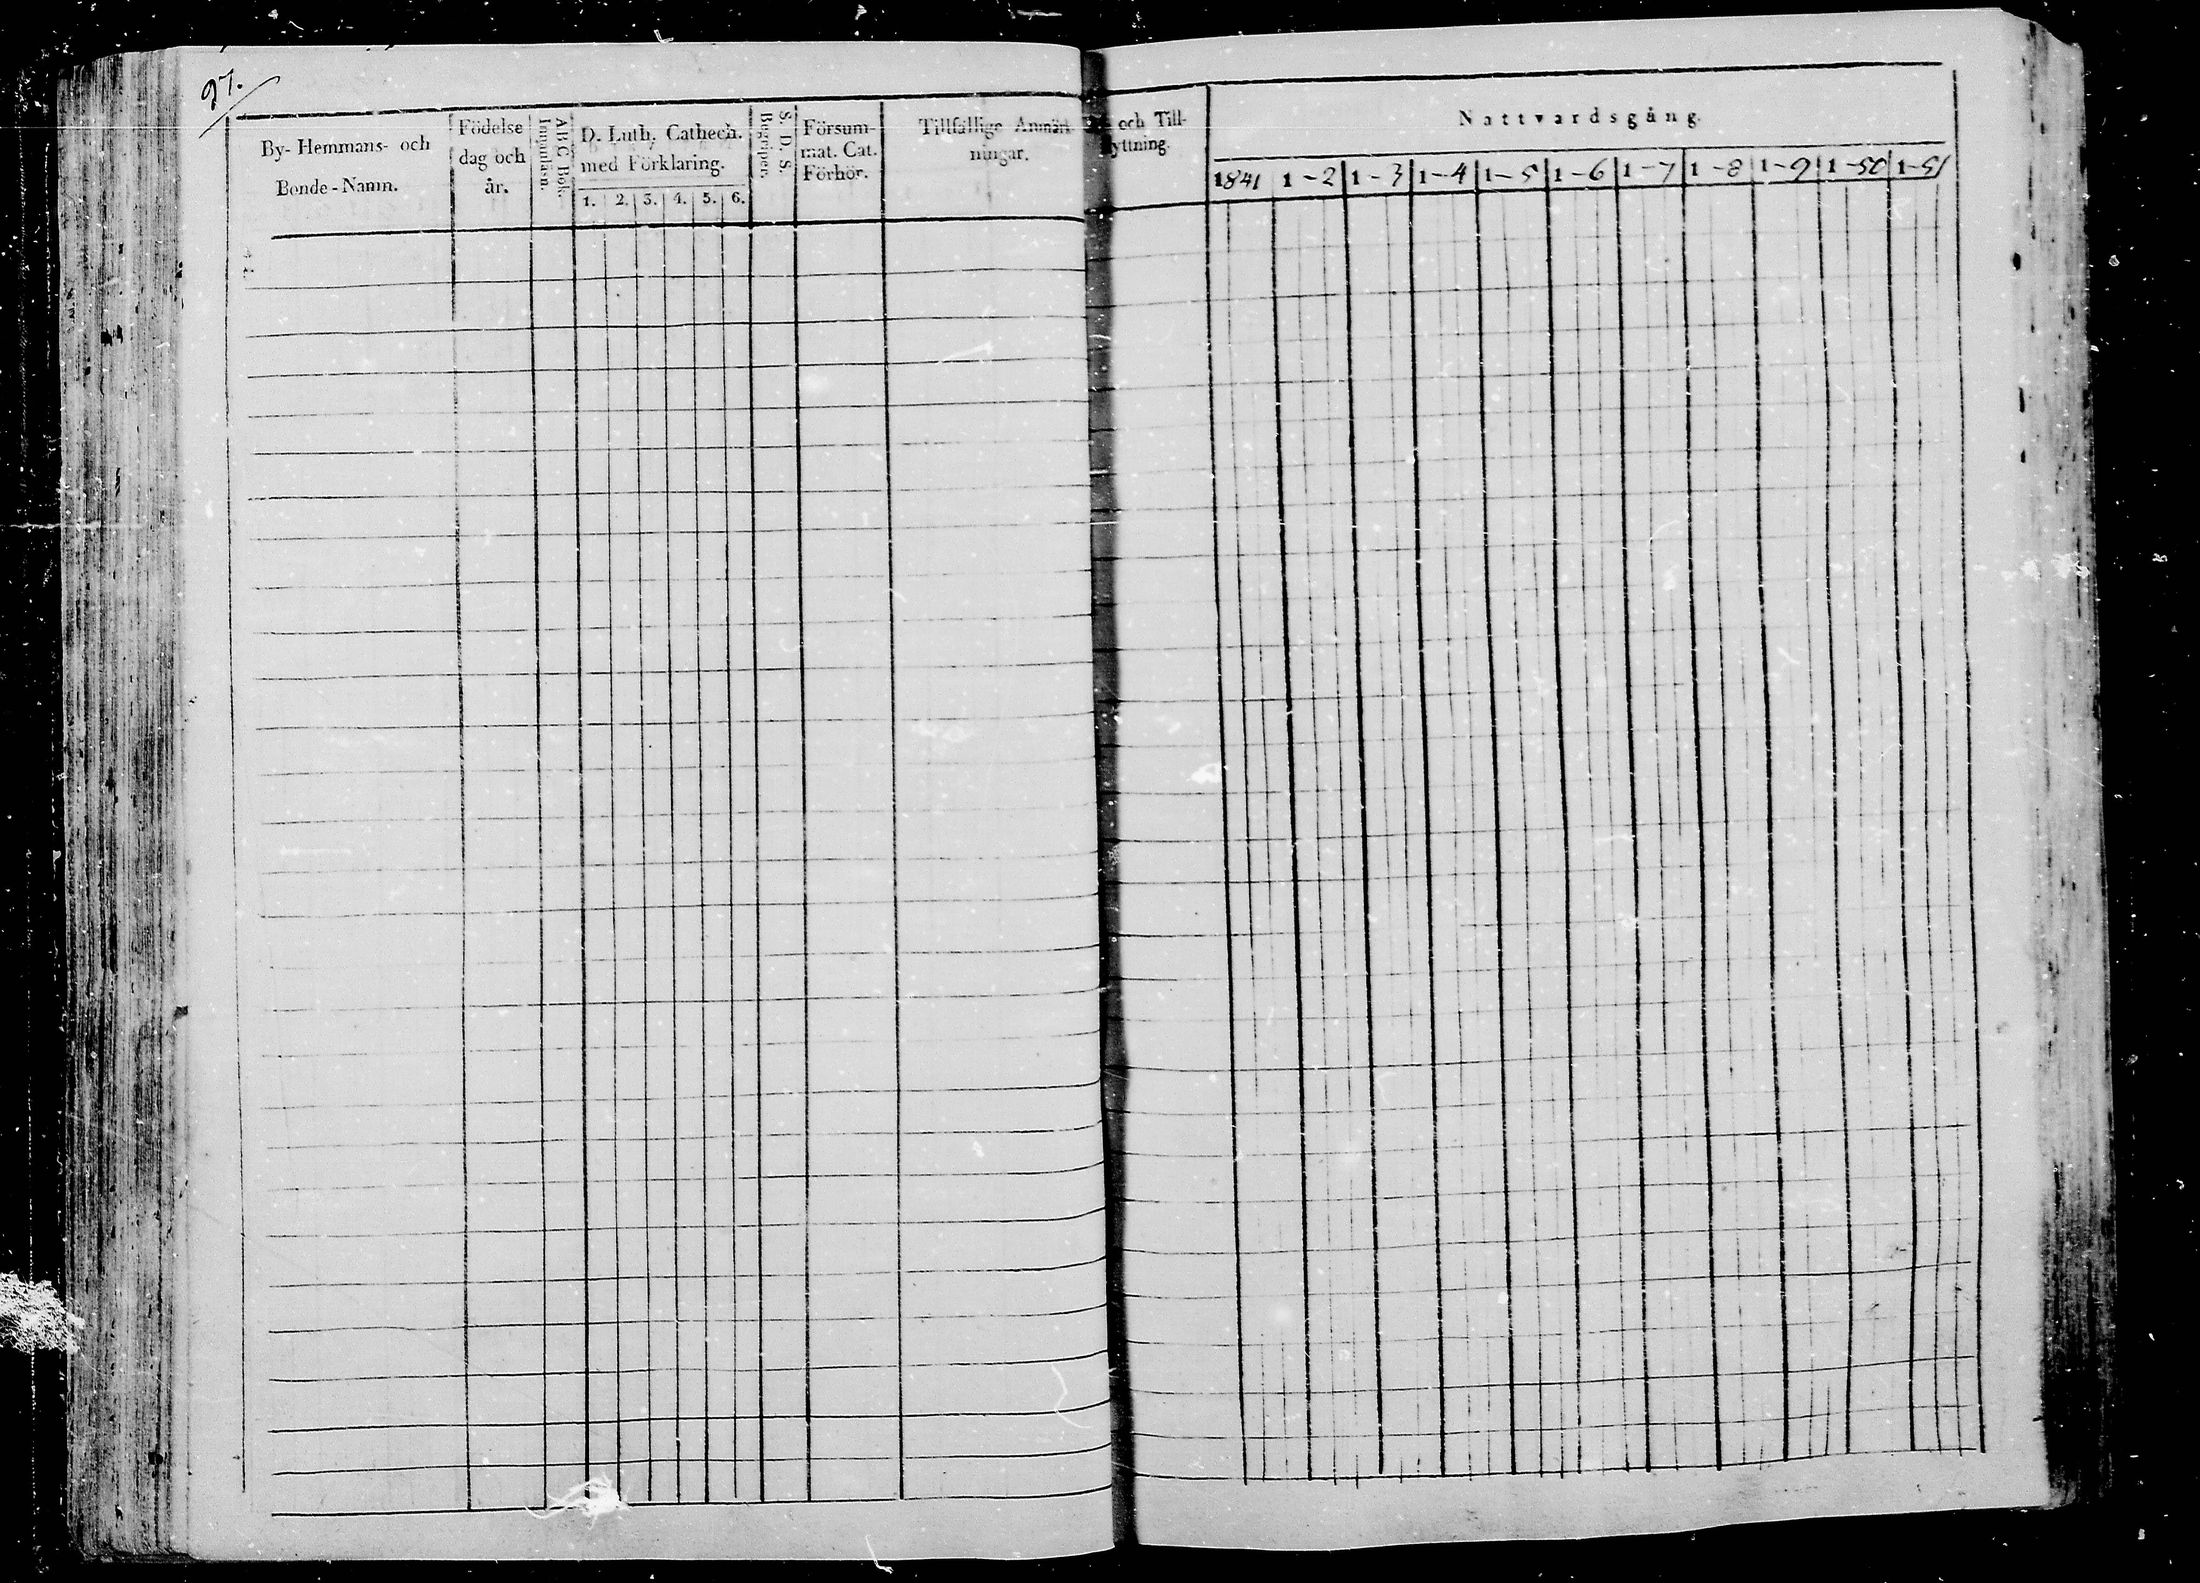 97.
By- Hemmans- och
Bonde - Namn.
Födelse
dag och
år.
ABC Bok.
Innanläsn.
D. Luth. Cathech.
med Förklaring.
1. 2. 3. 4. 5. 6.
S. D. S.
Begriper.
Försum-
mat. Cat.
Förhör.
Tillfällige Anmärk-
ningar.
och Till-
yttning.
Nattvardsgång.
1841 1-2 1-3 1-4 1-5 1-6 1-7 1-8 1-9 1-50 1-51